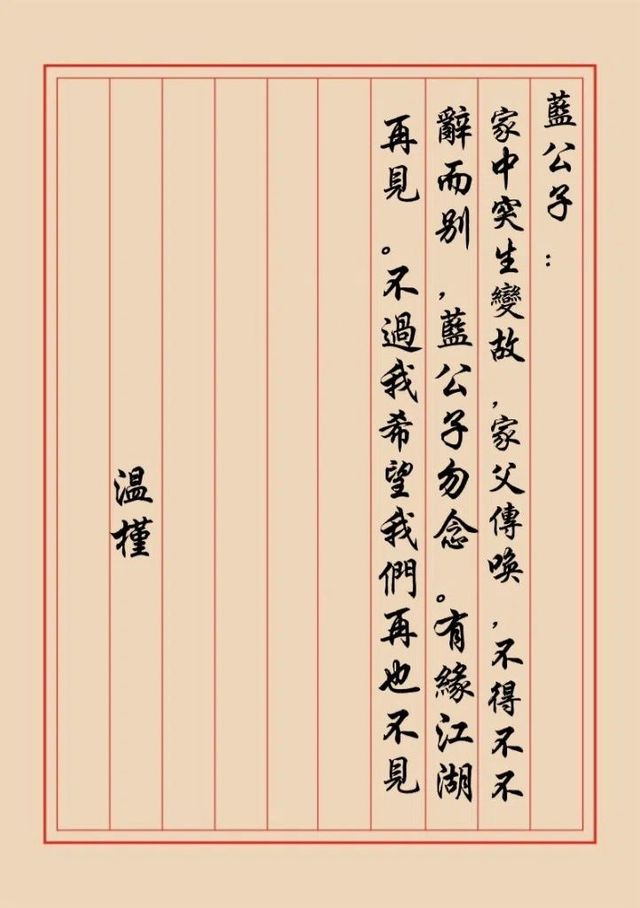 藍公子：
家中突生變故，家父傳喚，不得不不
辭而别，藍公子勿念。有緣江湖
再見。不過我希望我們再也不見
温槿